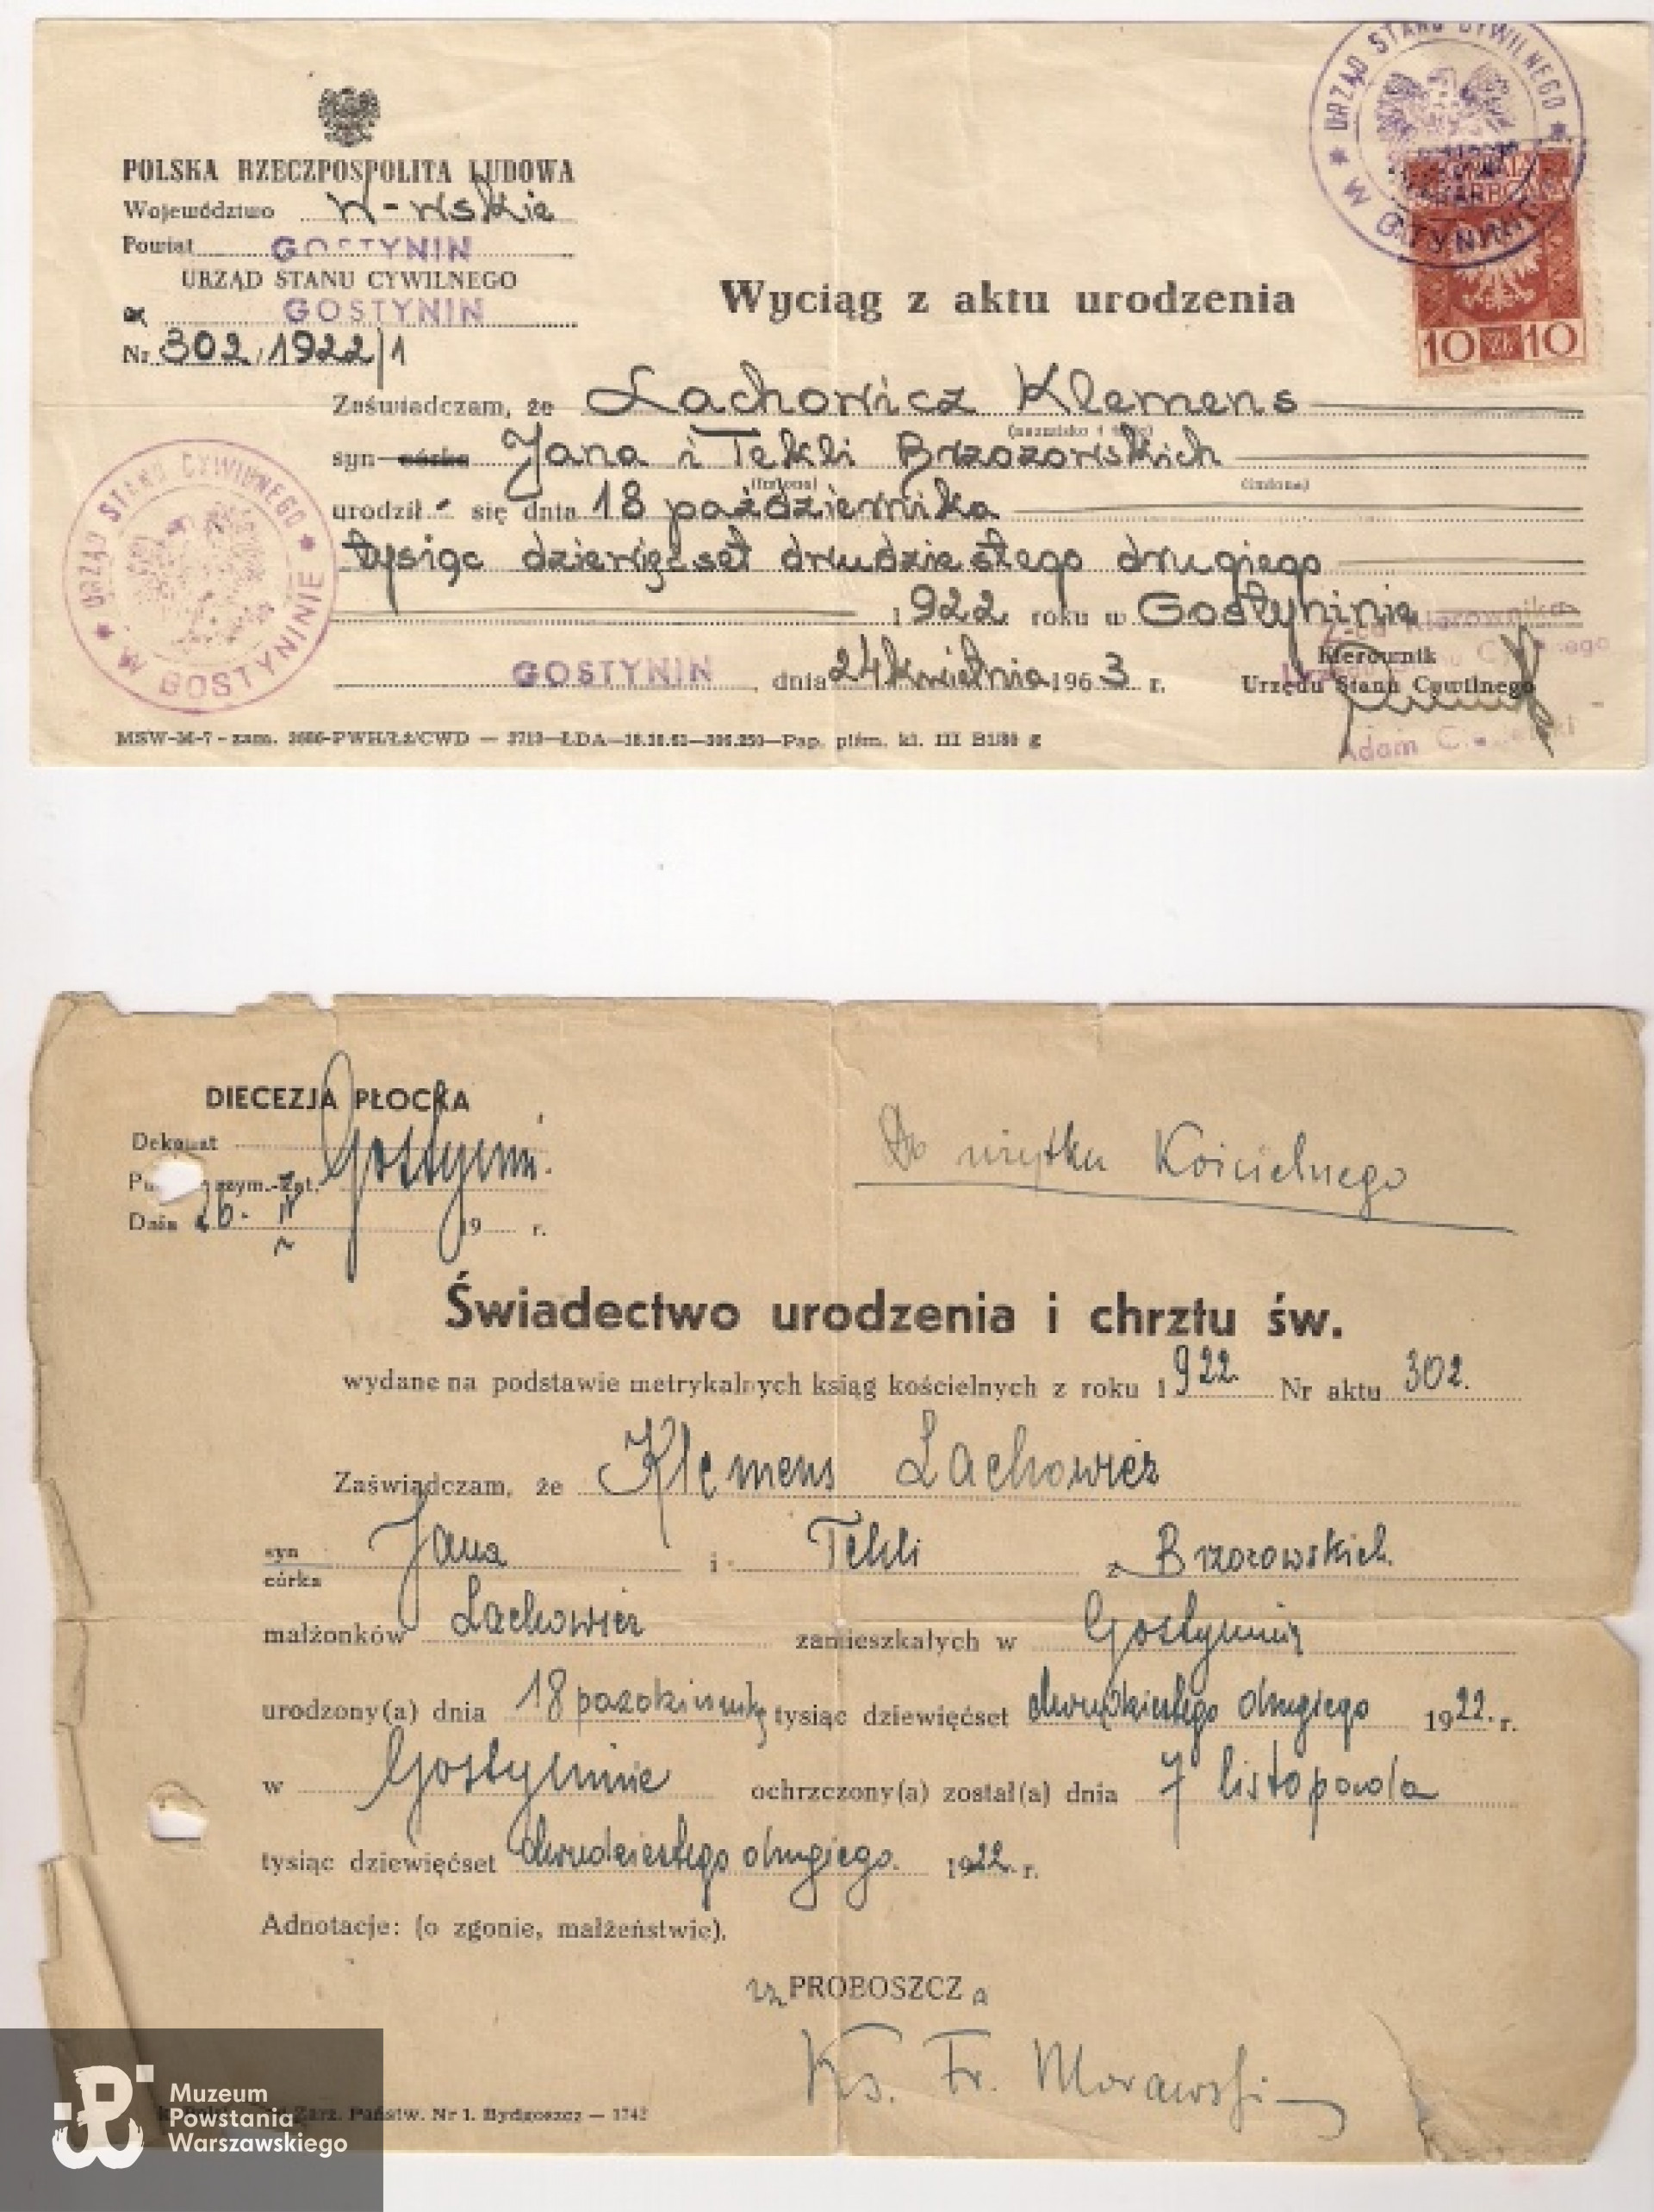 POLSKA RZECZPOSPOLITA LUDOWA
Województwo W-wskie
Powiat GOSTYNIN
URZĄD STANU CYWILNEGO
GOSTYNIN
Nr 302/1922/1
URZĄD STANU CYWILNEGO
W GOSTYNINIE
10 ZŁ 10
Wyciąg z aktu urodzenia
Zaświadczam, że Lachowicz Klemens
(nazwisko i imię)
syn córka Jana i Tekli Brzozowskich
(imiona) (imiona)
urodził - się dnia 18 października
tysiąc dziewięćset dwudziestego drugiego
1922 roku w Gostyninie
GOSTYNIN, dnia 24 kwietnia 1963 r.
Z-ca Kierownika
Kierownik
Urzędu Stanu Cywilnego
Adam
URZĄD STANU CYWILNEGO
W GOSTYNINIE
MSW-M-7 - zam. PWH/ŁZ/CWD — 3713—ŁDA— Pap. piśm. kl. III B1/80 g
DIECEZJA PŁOCKA
Dekanat Gostynin.
zym.-Kat.
Dnia 26. IV 19 r.
Do użytku Kościelnego
Świadectwo urodzenia i chrztu św.
wydane na podstawie metrykalnych ksiąg kościelnych z roku 1922 Nr aktu 302.
Zaświadczam, że Klemens Lachowicz
syn Jana i Tekli z Brzozowskich
córka
małżonków Lachowicz zamieszkałych w Gostyninie
urodzony(a) dnia 18 października tysiąc dziewięćset dwudziestego drugiego 1922. r.
w Gostyninie ochrzczony(a) został(a) dnia 7 listopada
tysiąc dziewięćset dwudziestego drugiego. 1922 r.
Adnotacje: (o zgonie, małżeństwie).
za PROBOSZCZa
Ks. Fr. Morawski
Zarz. Państw. Nr 1. Bydgoszcz — 1742
Muzeum
Powstania
Warszawskiego